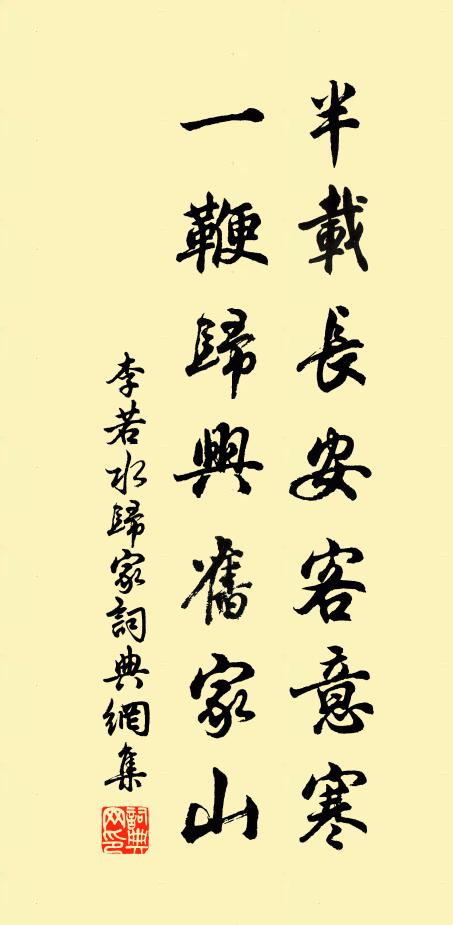 半載長安客意寒
一鞭歸興舊家山
李若水歸家詞典網集
詞典
网印